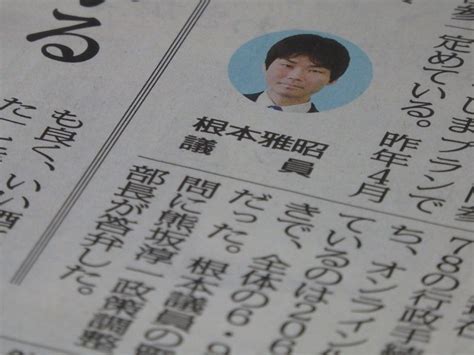 しまプランで
定めている。昨年4月
根本雅昭
議員
78の行政手
ち、オンライン
ているのは206
きで、全体の6・9
だった。根本議員の質
問に熊坂淳一政策調整
部長が答弁した。
る
も良く、いい酒
た